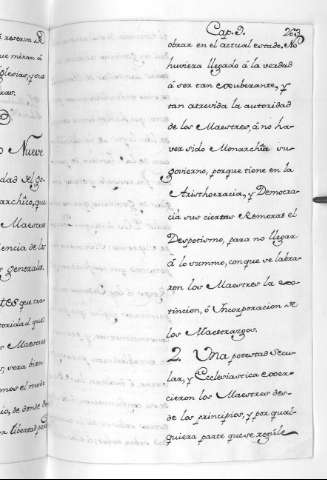 Cap. 9.
263
obrar en el actual estado. No
huviera llegado á la verdad
á ser tan exuberante, y
tan atrevida la autoridad
de los Maestres, á no ha-
ver sido Monarchico su
govierno, porque tiene en la
Aristhocracia, y Democra-
cia sus ciertas Remoras el
Despotismo, para no llegar
á lo summo, con que se labra-
ron los Maestres la ex-
tincion, ó Incorporacion de
los Maestrazgos.
2. Una potestad Secu-
lar, y Ecclesiastica exer-
cieron los Maestres des-
de los principios, y por qual-
quiera parte que se regúle
reserva
que miran á
glesias, y
Nueve
dad del Go-
narchico, que
Maestres
iencia de los
generales.
que
toridad que
Maestres
vera bien
mos el
io, de donde
libertad